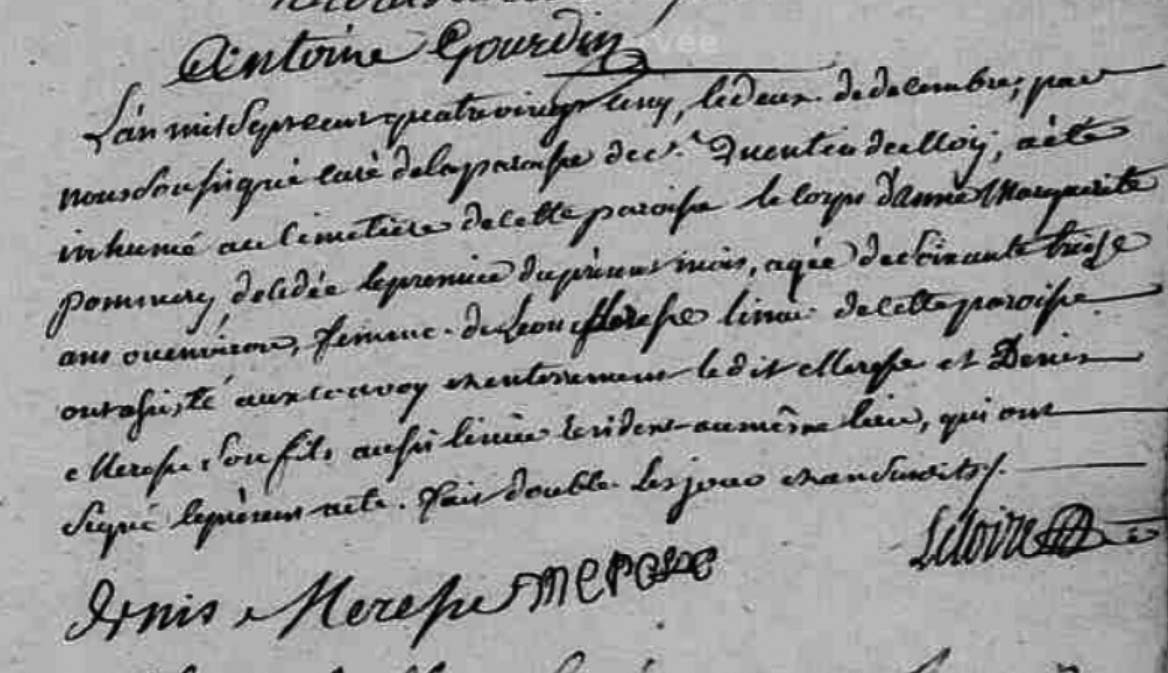 Antoine Gourdin
L'an mil sept cent quatre vingt cinq, le deux de decembre, par
nous soussigné curé de la paroisse de St. Quentin de Moÿ, a été
inhumé au cimetière de cette paroisse le corps d'anne Marguerite
pommery, décédée le premier du présent mois, agée de soixante treize
ans ou environ, femme de Leon Meresse linier de cette paroisse
ont assisté aux convoy et enterrement le dit Meresse et Denis
Meresse son fils aussi linier resident au même lieu, qui ont
signé le présent acte. fait double les jour et an susdits /.
Denis Meresse Meresse